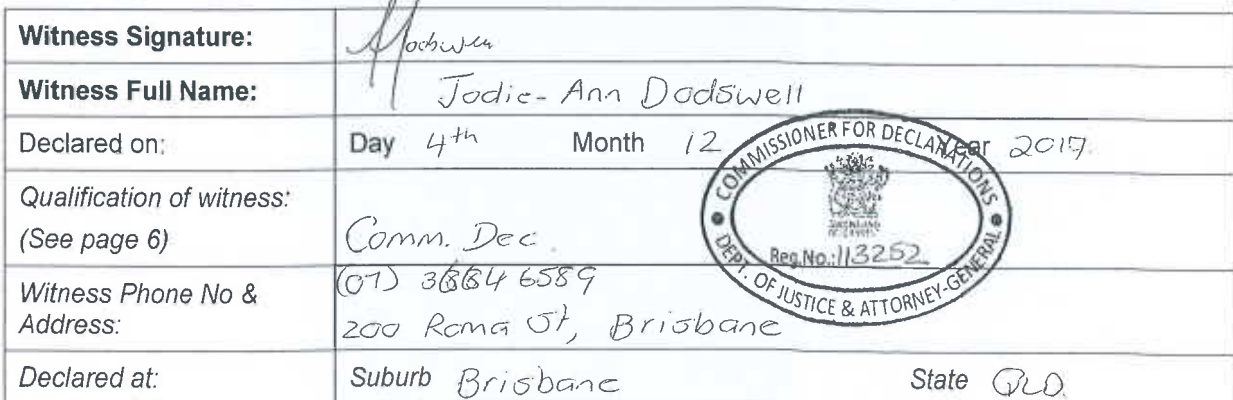 Witness Signature:
Witness Full Name: Jodie-Ann Dodswell
Declared on: Day 4th Month 12 Year 2017
Qualification of witness:
(See page 6) Comm. Dec.
Witness Phone No &
Address:
(07) 6589
200 Roma St, Brisbane
Declared at: Suburb Brisbane State QLD
COMMISSIONER FOR DECLARATIONS
Reg.No.:113252
DEPT. OF JUSTICE & ATTORNEY-GENERAL